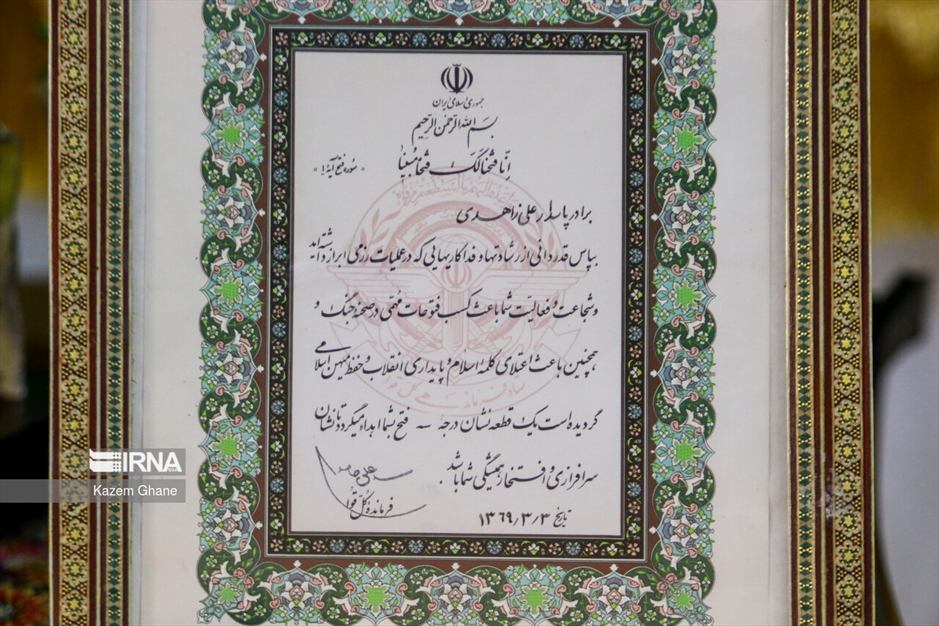 جمهوری اسلامی ایران
بسم الله الرحمن الرحیم
انا فتحنا لک فتحا مبینا «سوره فتح آیه ۱»
برادر پاسدار علی زاهدی
بپاس قدردانی از رشادتها و فداکاریهایی که در عملیات رزمی ابراز داشته‌اید
و شجاعت و فعالیت شما باعث کسب فتوحات مهمی در صحنه جنگ و
همچنین باعث اعتلای کلمه اسلام و پایداری انقلاب و حفظ میهن اسلامی
گردیده است یک قطعه نشان درجه ۳ فتح بشما اهداء میگردد تا نشان
سرافرازی و افتخار همیشگی شما باشد.
فرمانده کل قوا
تاریخ ۱۳۶۹/۳/۳
IRNA
Kazem Ghane